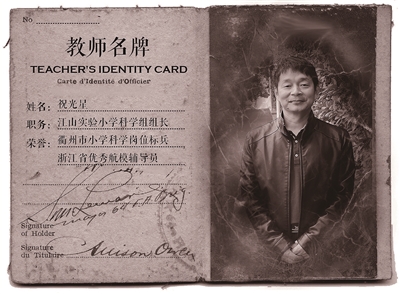 No
教师名牌
TEACHER'S IDENTITY CARD
Carte d'Identité d'Officier
姓名：祝光星
职务：江山实验小学科学组组长
荣誉：衢州市小学科学岗位标兵
浙江省优秀航模辅导员
Signature
of Holder
Signature
du Titulaire
Allison Owen